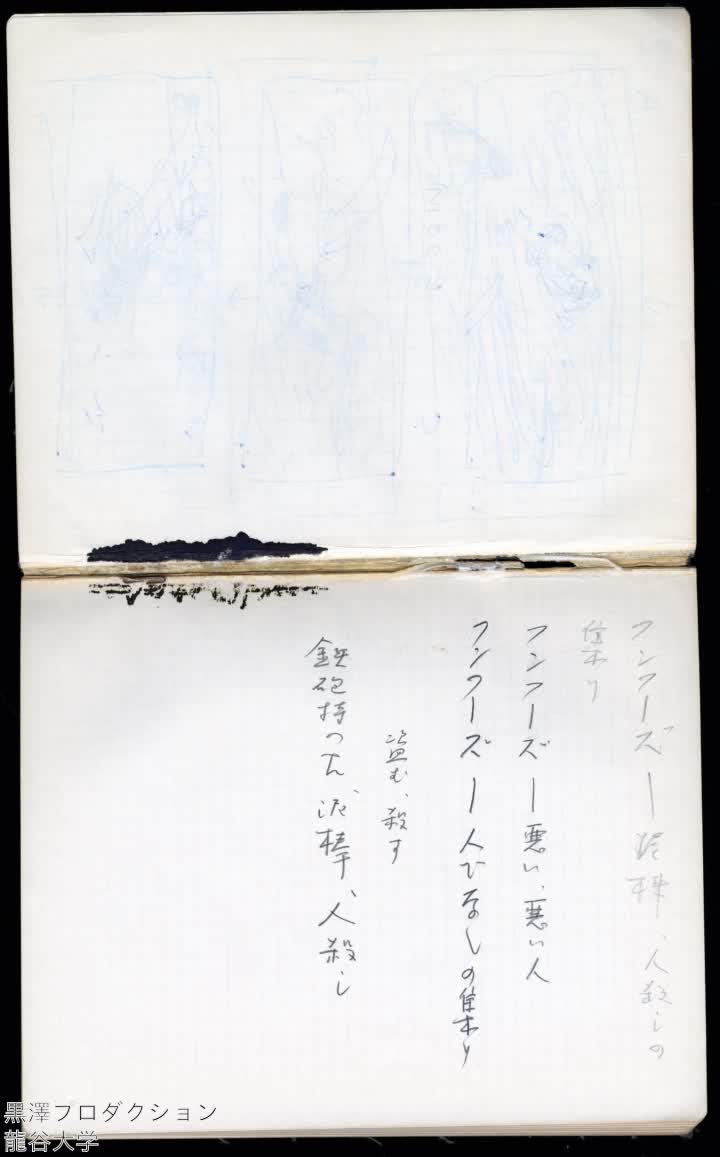 フンフーズ ー 泥棒、人殺しの
集り
フンフーズ ー 悪い、悪い人
フンフーズ ー 人ひなしの集り
盗む、殺す
鉄砲持った、泥棒、人殺し
黒澤プロダクション
龍谷大学